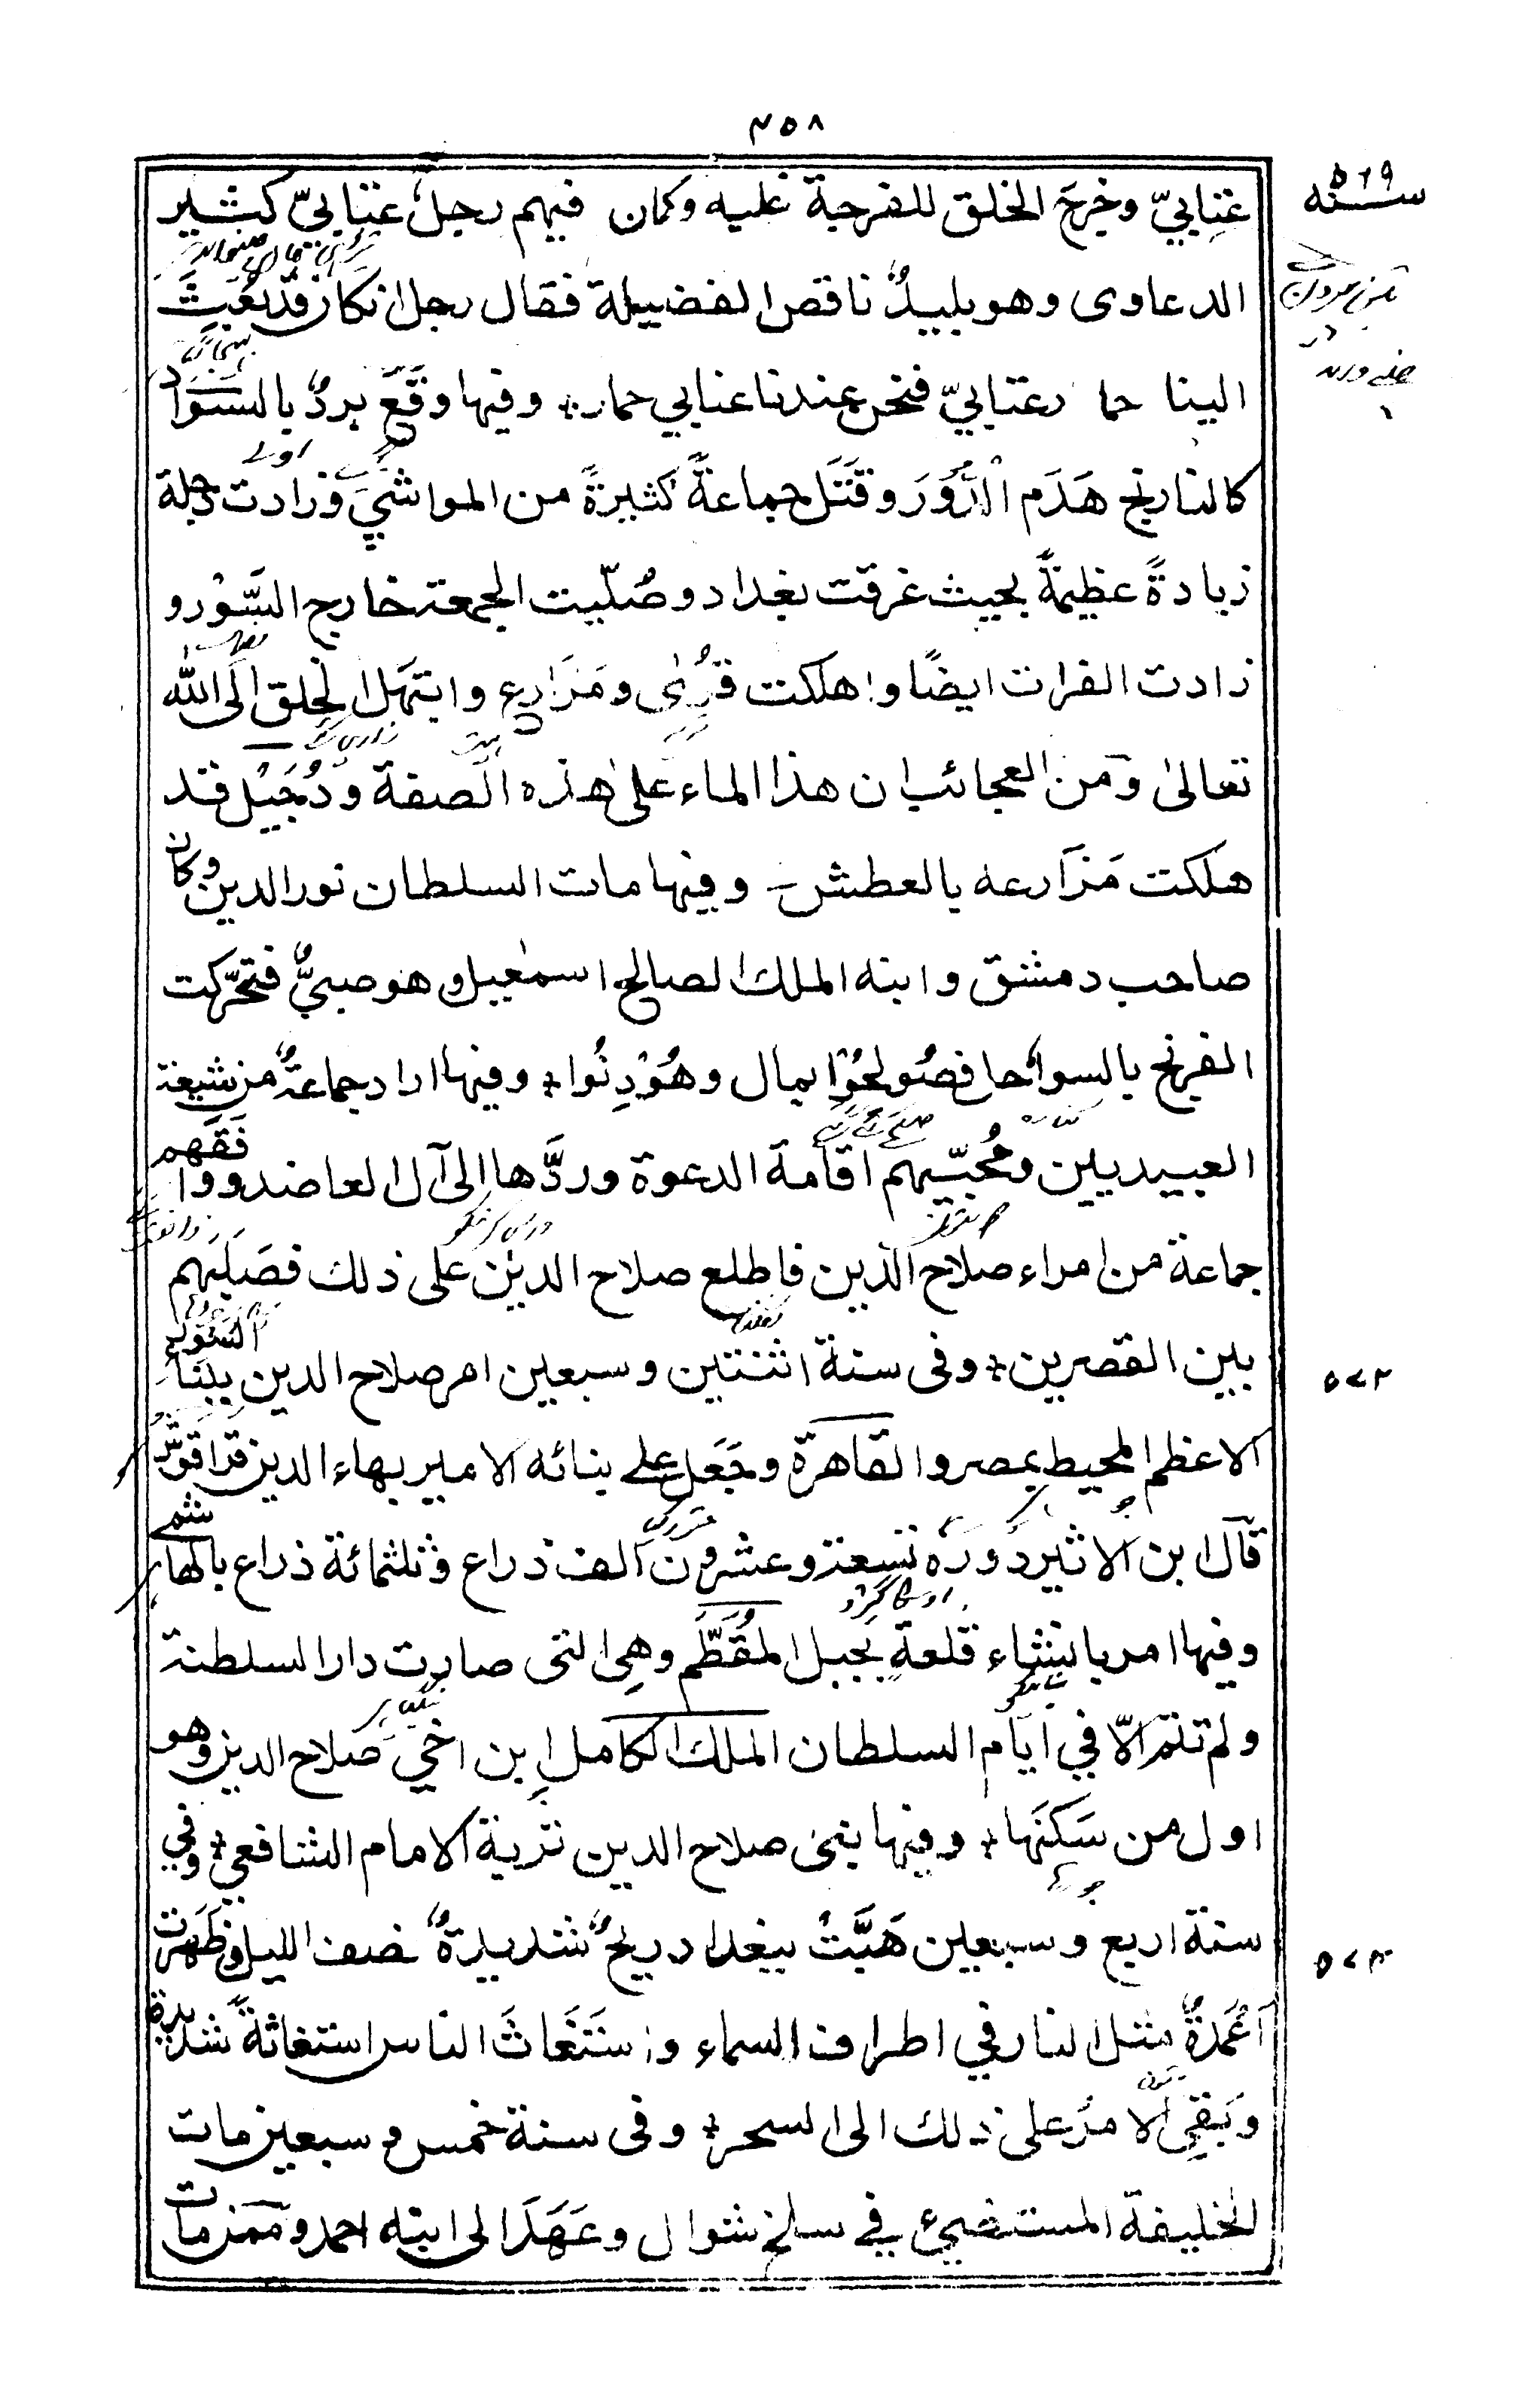 ۴۵۸
سنة ۵۶۹
عتابيّ وخرج الخلق للفرجة عليه وكان فيهم رجلٌ عتابيّ كثير
الدعاوى وهو بليدٌ ناقص الفضيلة فقال رجل ان كان قد بَعَثَ
الينا حمار عتابيّ فنحن عندنا عنابي حمار؞ وفيها وَقَعَ بردٌ بالسَّوَاد
كالنارنج هَدَم الدُّوْرَ وقَتَل جماعةً كثيرةً من المواشيَ وزادت دجلة
زيادةً عظيمةً بحيث غرقت بغداد وصُلّيت الجمعة خارج السُّوْر و
زادت الفرات ايضًا واهلكت قُرًى ومَزَارع وابتهل الخلق الَى الله
تعالىٰ ومن العجائب ان هذا الماء على هذه الصفة ودُجَيْل قد
هلكت مَزَارعه بالعطش ـ وفيها مات السلطان نور الدين وكان
صاحب دمشق وابنه الملك الصالح اسمٰعيل وهو صبيٌّ فتحرّكت
الفرنج بالسواحل فصُولحُوْا بمال وهُوْدِنُوا؞ وفيها اراد جماعةٌ من شيعة
العبيديين ومُحبّيهم اقامة الدعوة وردَّها الى آل العاضد ووافَقَهم
جماعة من امراء صلاح الدين فاطلع صلاح الدين على ذلك فصَلَبهم
بين القصرين؞ وفى سنة اثنتين وسبعين امر صلاح الدين ببنَاء السُّوْر
۵۷۲
الاعظم المحيط بمصر والقاهرة وجَعَل على بنائه الامير بهاء الدين قراقوش
قال ابن الاثير دَورَه تسعة وعشرون الف ذراع وثلثمائة ذراع بالهاشمي
وفيها امر بانشاء قلعةٍ بجبل المُقَطَّم وهي التى صارت دار السلطنة
ولم تتمّ الّا في ايّام السلطان الملك الكامل ابن اخي صلاح الدين وهو
اول من سَكَنَها؞ وفيها بنى صلاح الدين تربة الامام الشافعي؞ وفي
سنة اربع وسبعين هَبَّتْ ببغداد ريحٌ شديدةٌ نصف الليل وظَهَرت
۵۷۴
اَعْمَدةٌ مثل النار في اطراف السماء واسْتَغَاثَ الناس استغاثةً شديدة
وبَقِيَ الامرُ على ذلك الى السحر؞ وفى سنة خمس وسبعين مات
الخليفة المستضيء في سلخ شوال وعَهَدَ الى ابنه احمد وممن مات